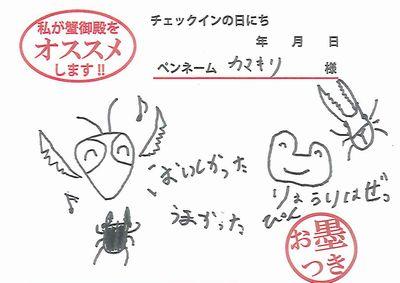 私が蟹御殿を
オススメ
します!!
チェックインの日にち
年 月 日
ペンネーム カマキリ 様
おいしかった
うまかった
りょうりはぜっ
ぴん
お墨
つき